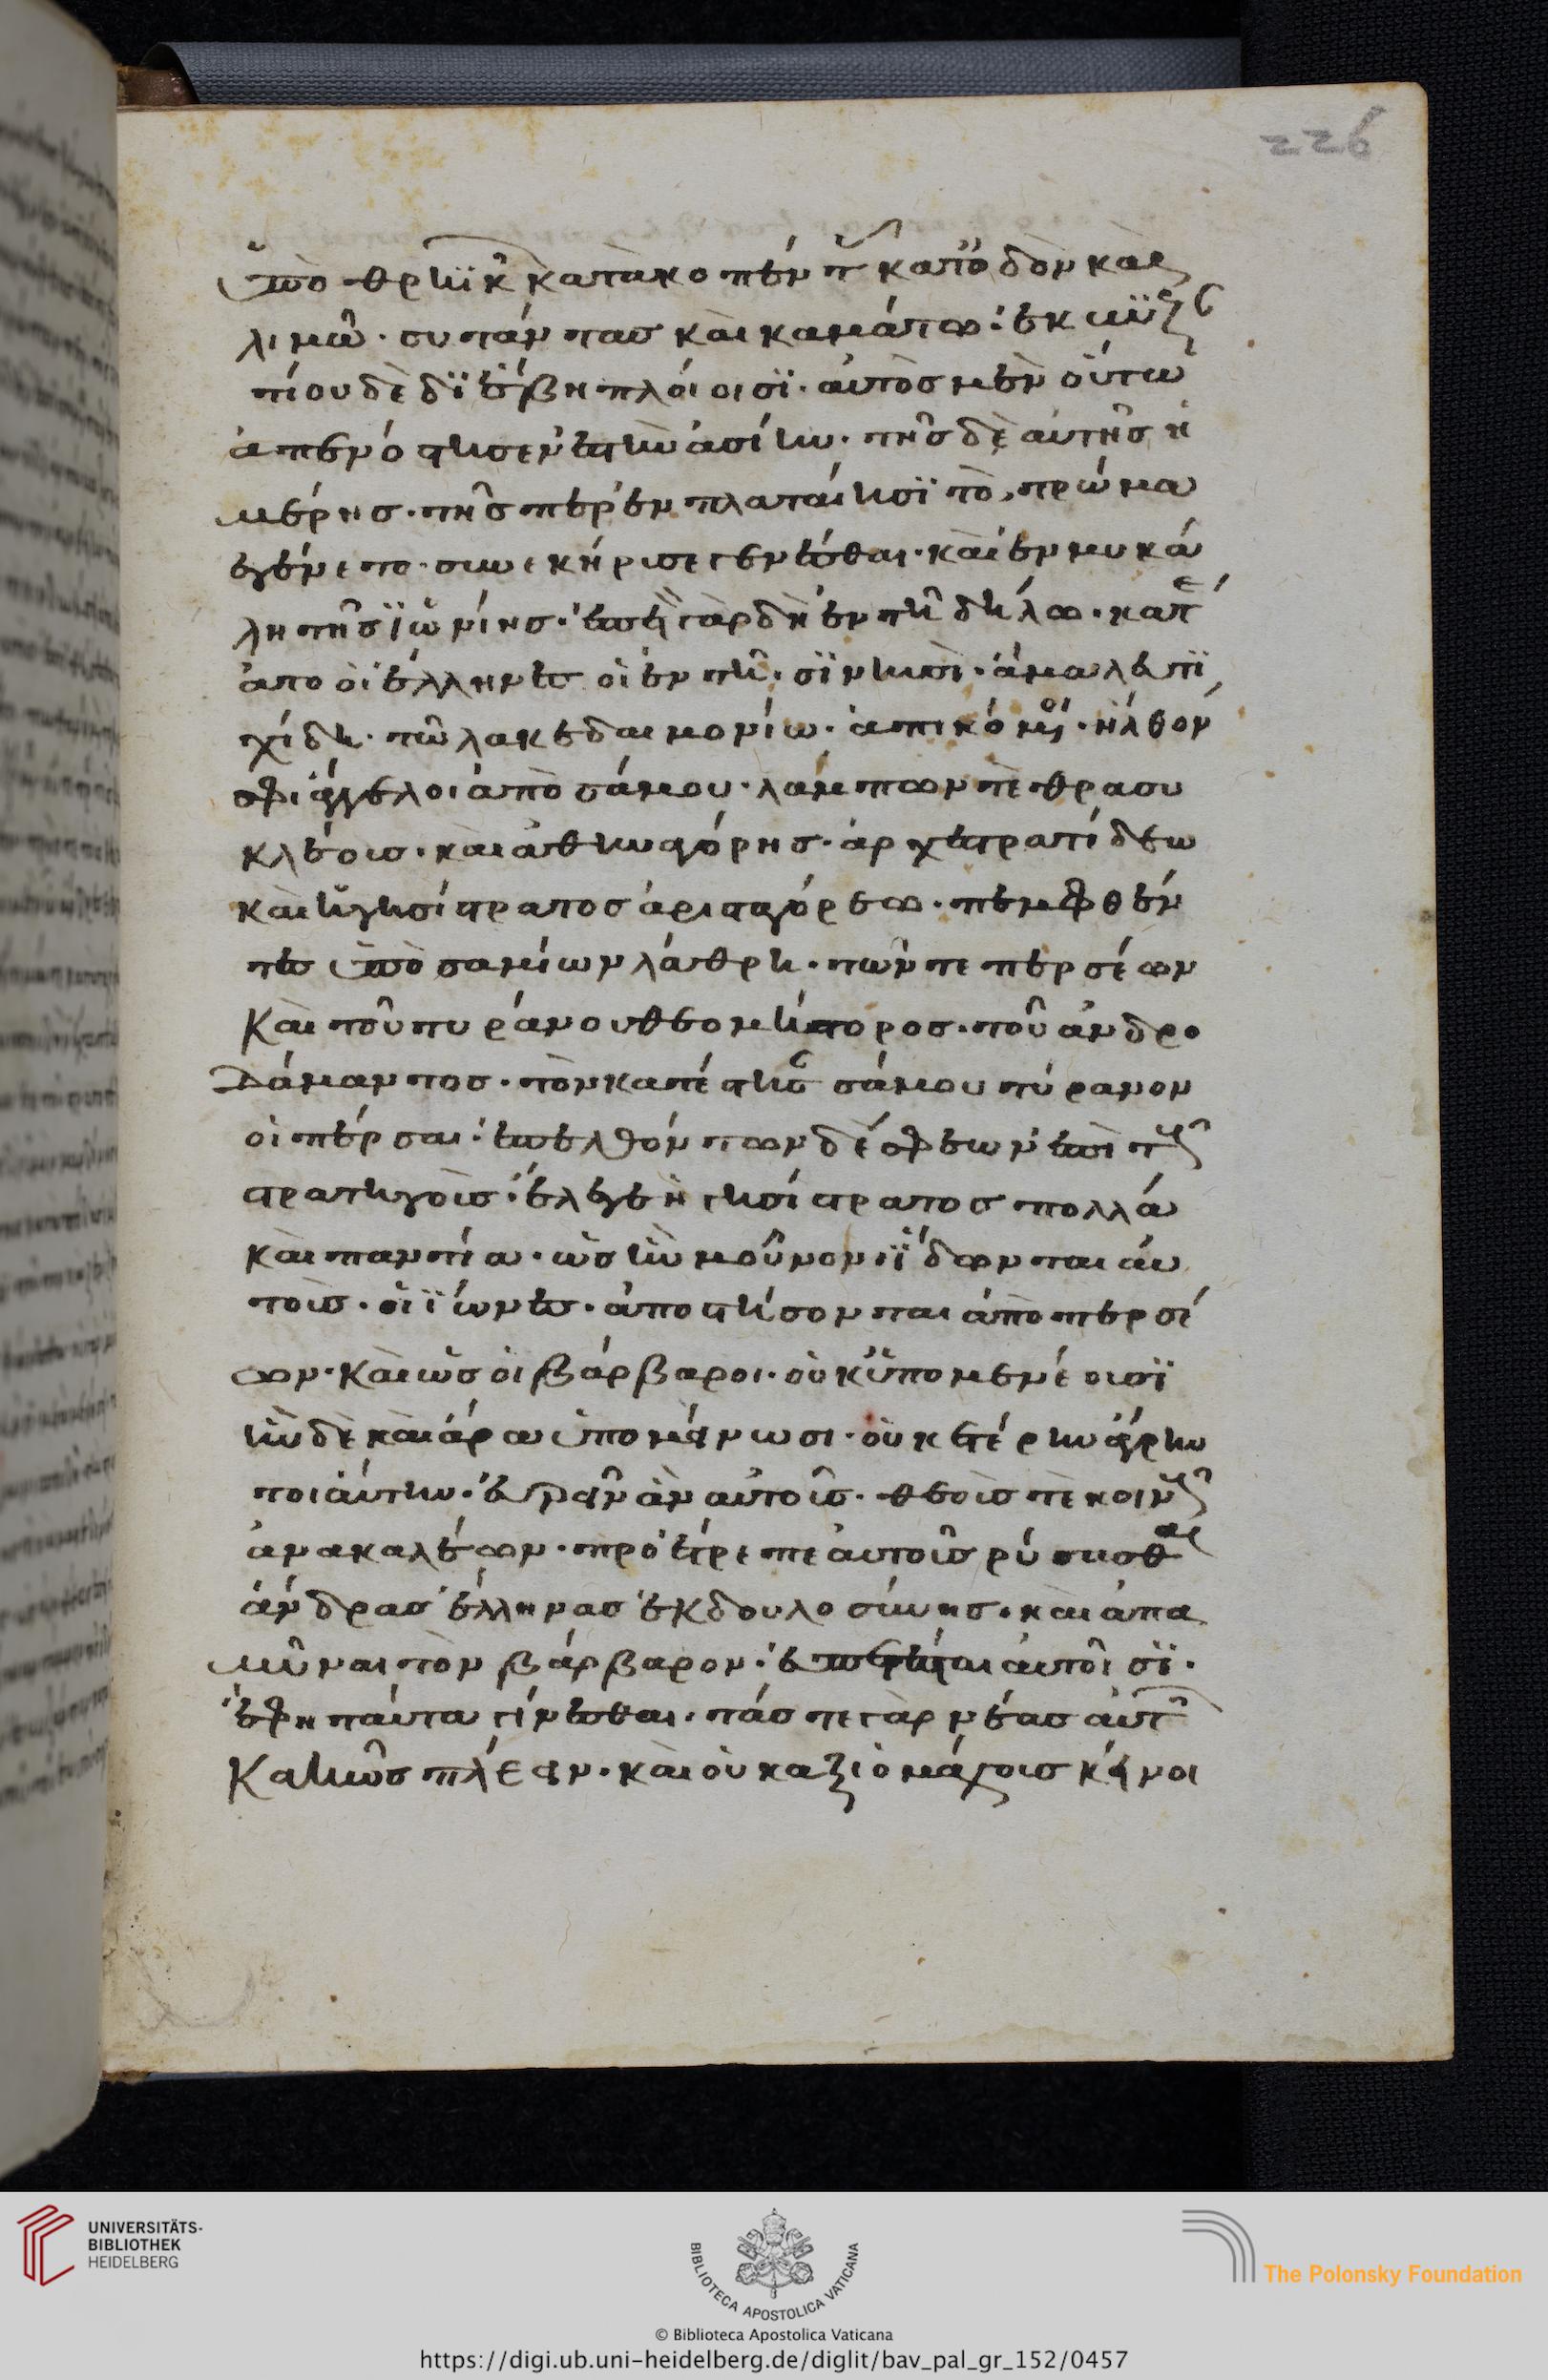 226
ὑπὸ θρηΐκ κατακοπέντ κατ' ὁδὸν καὶ
λιμῶ· συστάντας καὶ καμάτω· ἐκ
τίου δὲ διέβη πλοίοισϊ· αὐτὸς μὲν οὕτω
ἀπενόστησεν ἐς τὴν ἀσίην· τῆς δὲ αὐτῆς ἡ
μέρης· τῆς περ ἐν πλαταιῆσϊ τὸ τρῶμα
ἐγένετο· συνεκήρησε γενέσθαι· καὶ ἐν μυκά
λη τῆς ἰωνίης· ἐπεὶ γὰρ δὴ ἐν τῆ δήλω· κατέ
ατο οἱ ἕλληνες οἱ ἐν τῆ· νηυσὶ· ἅμα λευτϊ
χίδη· τῶ λακεδαιμονίω· ἀπικόμενοι· ἦλθόν
σφι ἄγγελοι ἀπὸ σάμου· λάμπων τὲ θρασυ
κλέους· καὶ ἀθηναγόρης· ἀρχεστρατίδεω
καὶ ἡγησίστρατος ἀρισταγόρεω· πεμφθέν
τες ὑπὸ σαμίων λάθρη· τῶν τε περσέων
καὶ τοῦ τυράννου θεομήστορος· τοῦ ἀνδρο
δάμαντος· τὸν κατέστησαν σάμου τύραννον
οἱ πέρσαι· ἐπελθόντων δέ σφεων ἐπὶ τοὺς
στρατηγοὺς· ἔλεγε ἡγησίστρατος πολλὰ
καὶ παντοῖα· ὡς ἢν μοῦνον ἴδωνται αὐ
τοὺς· οἱ ἴωνες· ἀποστήσονται ἀπὸ περσέ
ων· καὶ ὡς οἱ βάρβαροι· οὐκ ὑπομενέουσϊ
ἢν δὲ καὶ ἄρα ὑπομείνωσι· οὐκ ἑτέρην ἄγρην
τοιαύτην· εὑρεῖν ἂν αὐτοὺς· θεούς τε κοινοὺς
ἀνακαλέων· προέτρεπε αὐτοὺς ῥύσασθαι
ἄνδρας ἕλληνας ἐκ δουλοσύνης· καὶ ἀπα
μῦναι τὸν βάρβαρον· εὐπετές τε αὐτοῖσϊ·
ἔφη ταῦτα γίνεσθαι· τάς τε γὰρ νέας αὐτῶν
κακῶς πλέειν· καὶ οὐκ ἀξιομάχους κείνοι
UNIVERSITÄTS-
BIBLIOTHEK
HEIDELBERG
BIBLIOTECA APOSTOLICA VATICANA
The Polonsky Foundation
© Biblioteca Apostolica Vaticana
https://digi.ub.uni-heidelberg.de/diglit/bav_pal_gr_152/0457